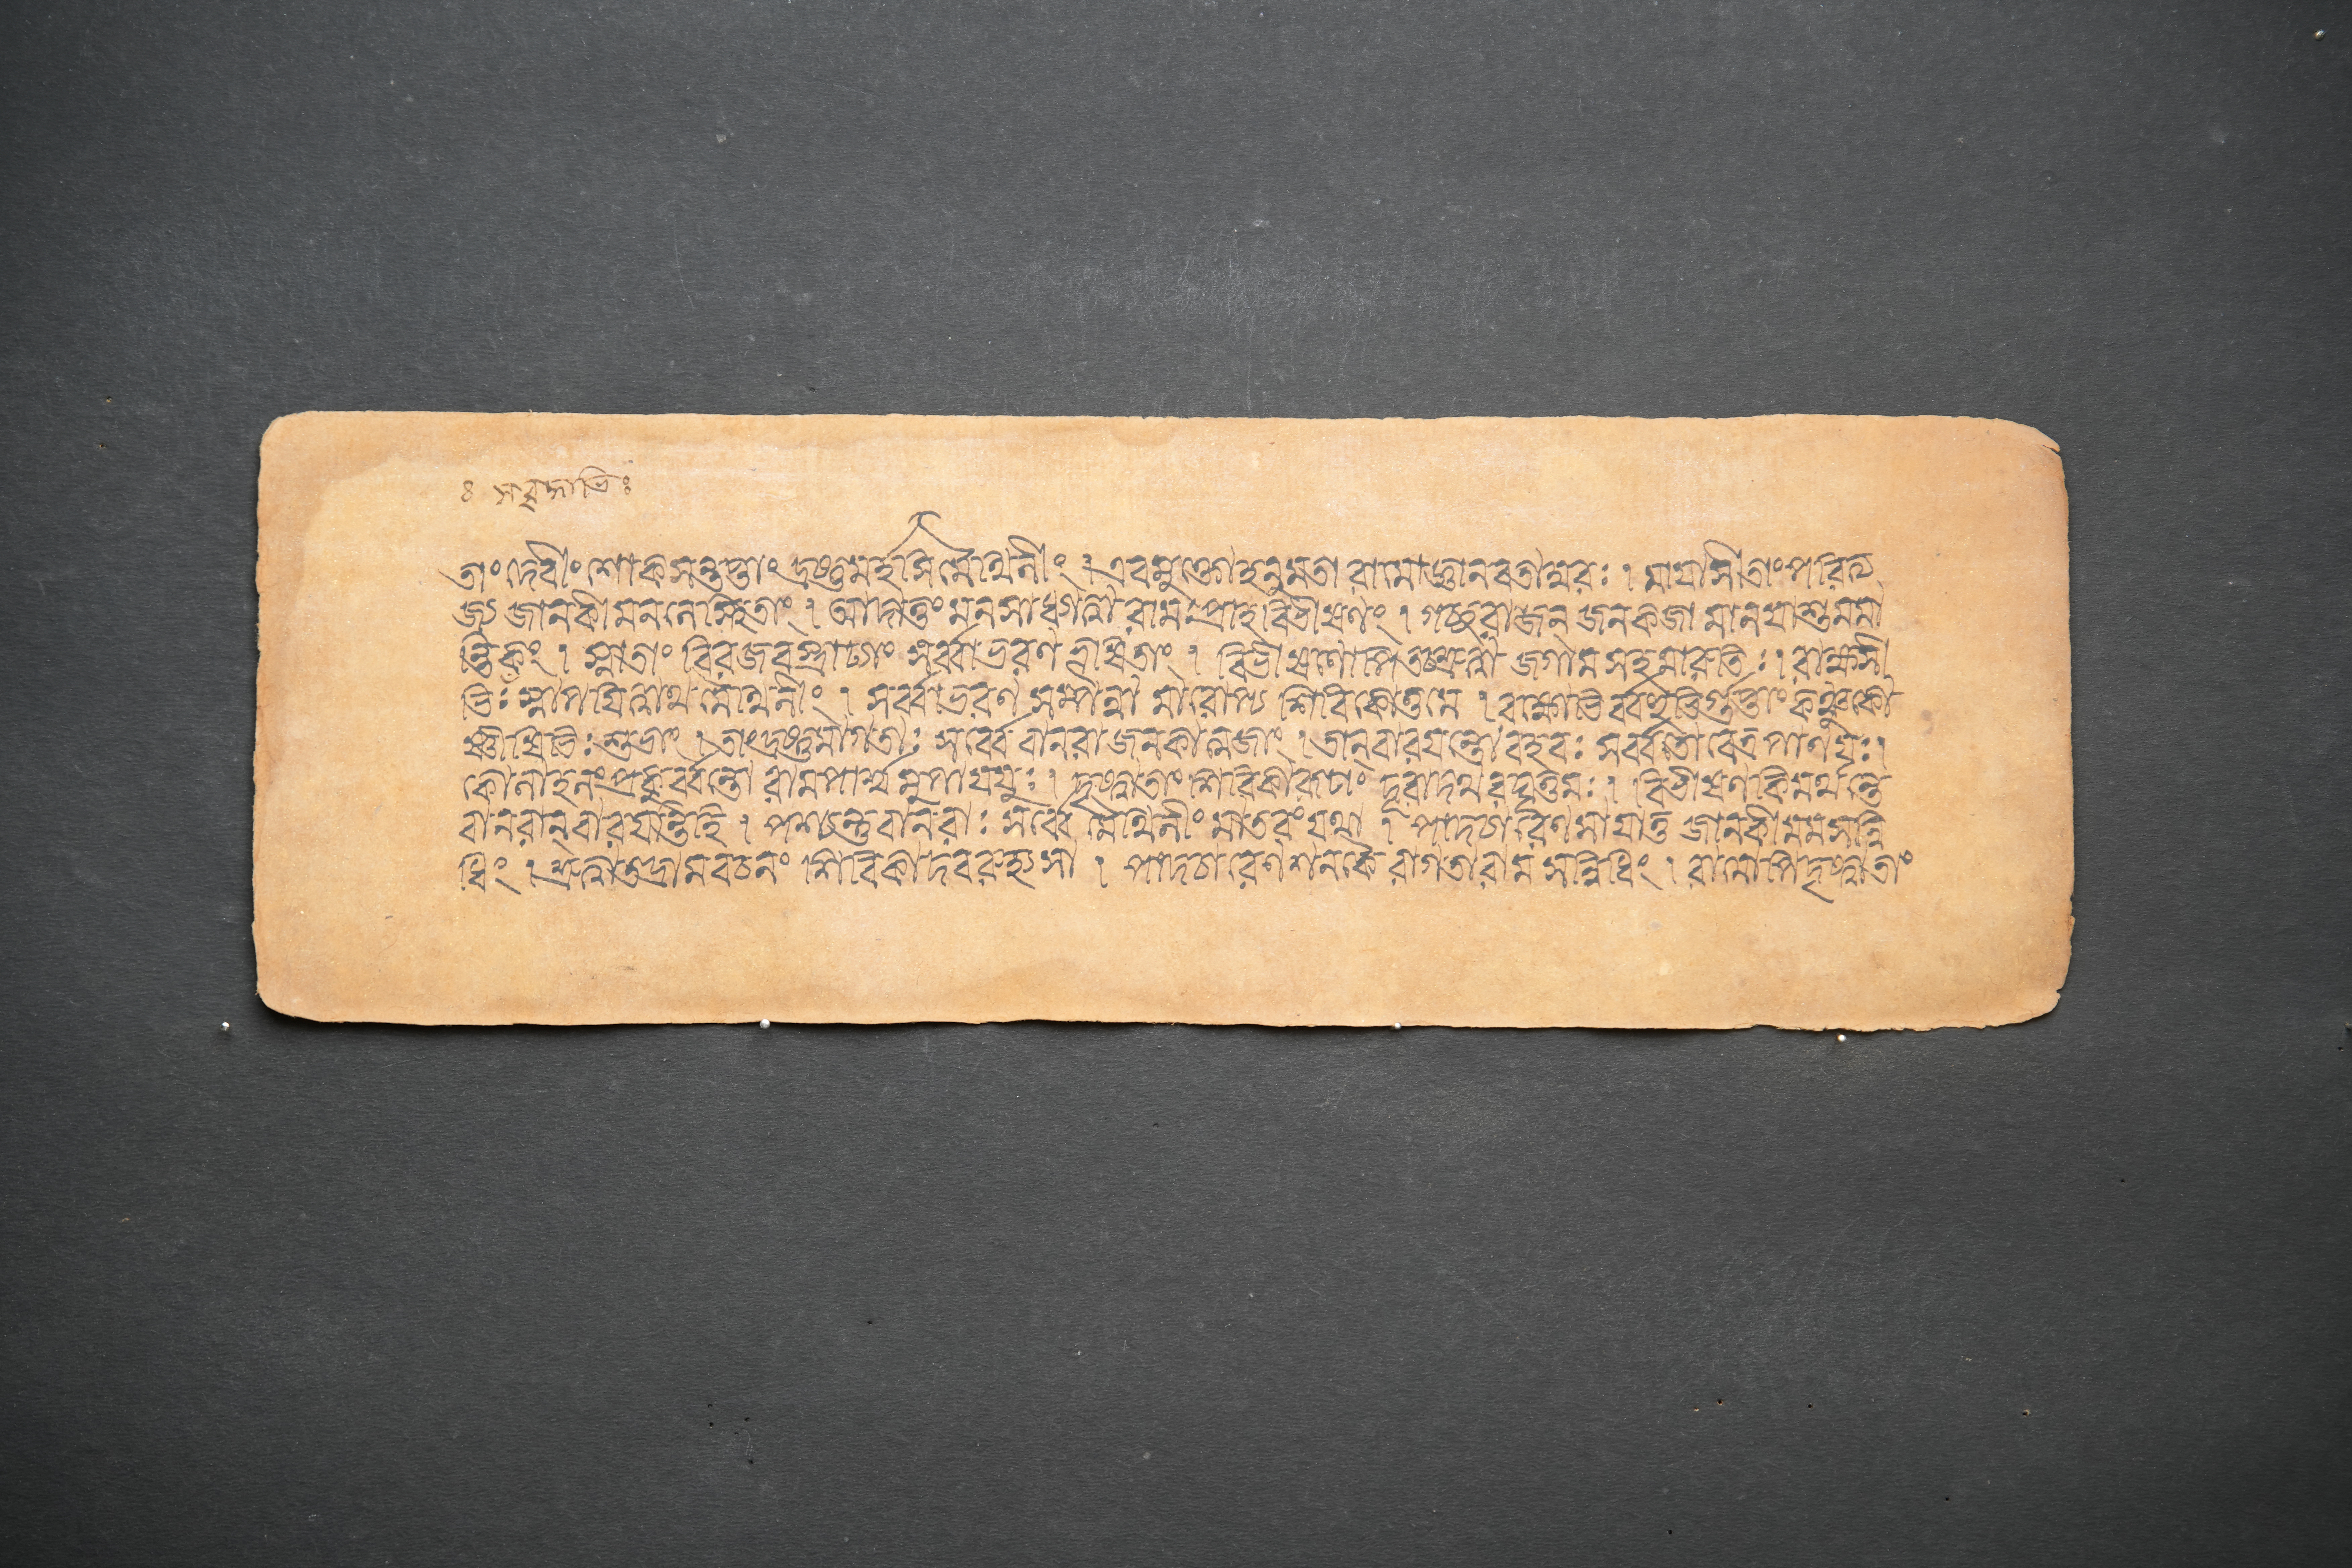 তাং দেবীং শোকসন্তপ্তাং দ্রষ্টুমর্হসি মৈথিলীং । এবমুক্তো হনুমতা রামো জ্ঞানবতাম্বরঃ । মায়াসীতাং পরিত্য
জ্য জানকীমনলে স্থিতাং । আদাতুং মনসা ধ্যাত্বা রামঃ প্রাহ বিভীষণং । গচ্ছ রাজন্ জনকজামানয়াশু মমা
ন্তিকং । স্নাতাং বিরজবস্ত্রাঢ্যাং সর্ব্বাভরণভূষিতাং । বিভীষণোপি তচ্ছ্রুত্বা জগাম সহমারুতিঃ । রাক্ষসী
ভিঃ স্নাপয়িত্বাথ মৈথিলীং । সর্ব্বাভরণসম্পন্না মারোপ্য শিবিকোত্তমে । রক্ষোভির্ব্বহুভির্গুপ্তাং কঞ্চুকো
ষ্ণীষিভিঃ শুভাং । তাং দ্রষ্টুমাগতাঃ সর্ব্বে বানরা জনকাত্মজাং । তান্ বারয়ন্তো বহবঃ সর্ব্বতো বেত্রপাণয়ঃ ।
কোলাহলং প্রকুর্ব্বন্তো রামপার্শ্বমুপাযযুঃ । দৃষ্ট্বা তাং শিবিকারূঢাং দূরাদথ রঘূত্তমঃ । বিভীষণ কিমর্থন্তে
বানরান্ বারয়ন্তি হি । পশ্যন্তু বানরাঃ সর্ব্বে মৈথিলীং মাতরং যথা । পাদচারেণ সায়াতু জানকী মম সন্নি
ধিং । শ্রুত্বা তদ্রামবচনং শিবিকাদবরুহ্য সা । পাদচারেণ শনকৈরাগতা রামসন্নিধিং । রামোপি দৃষ্ট্বা তাং